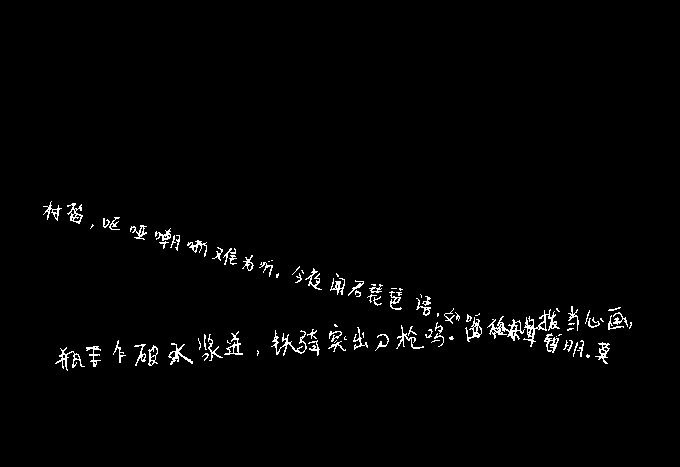 村笛,呕哑嘲哳难为听。今夜闻君琵琶语,如暂明。莫
瓶乍破水浆迸,铁骑突出刀枪鸣。曲终拨当心画,